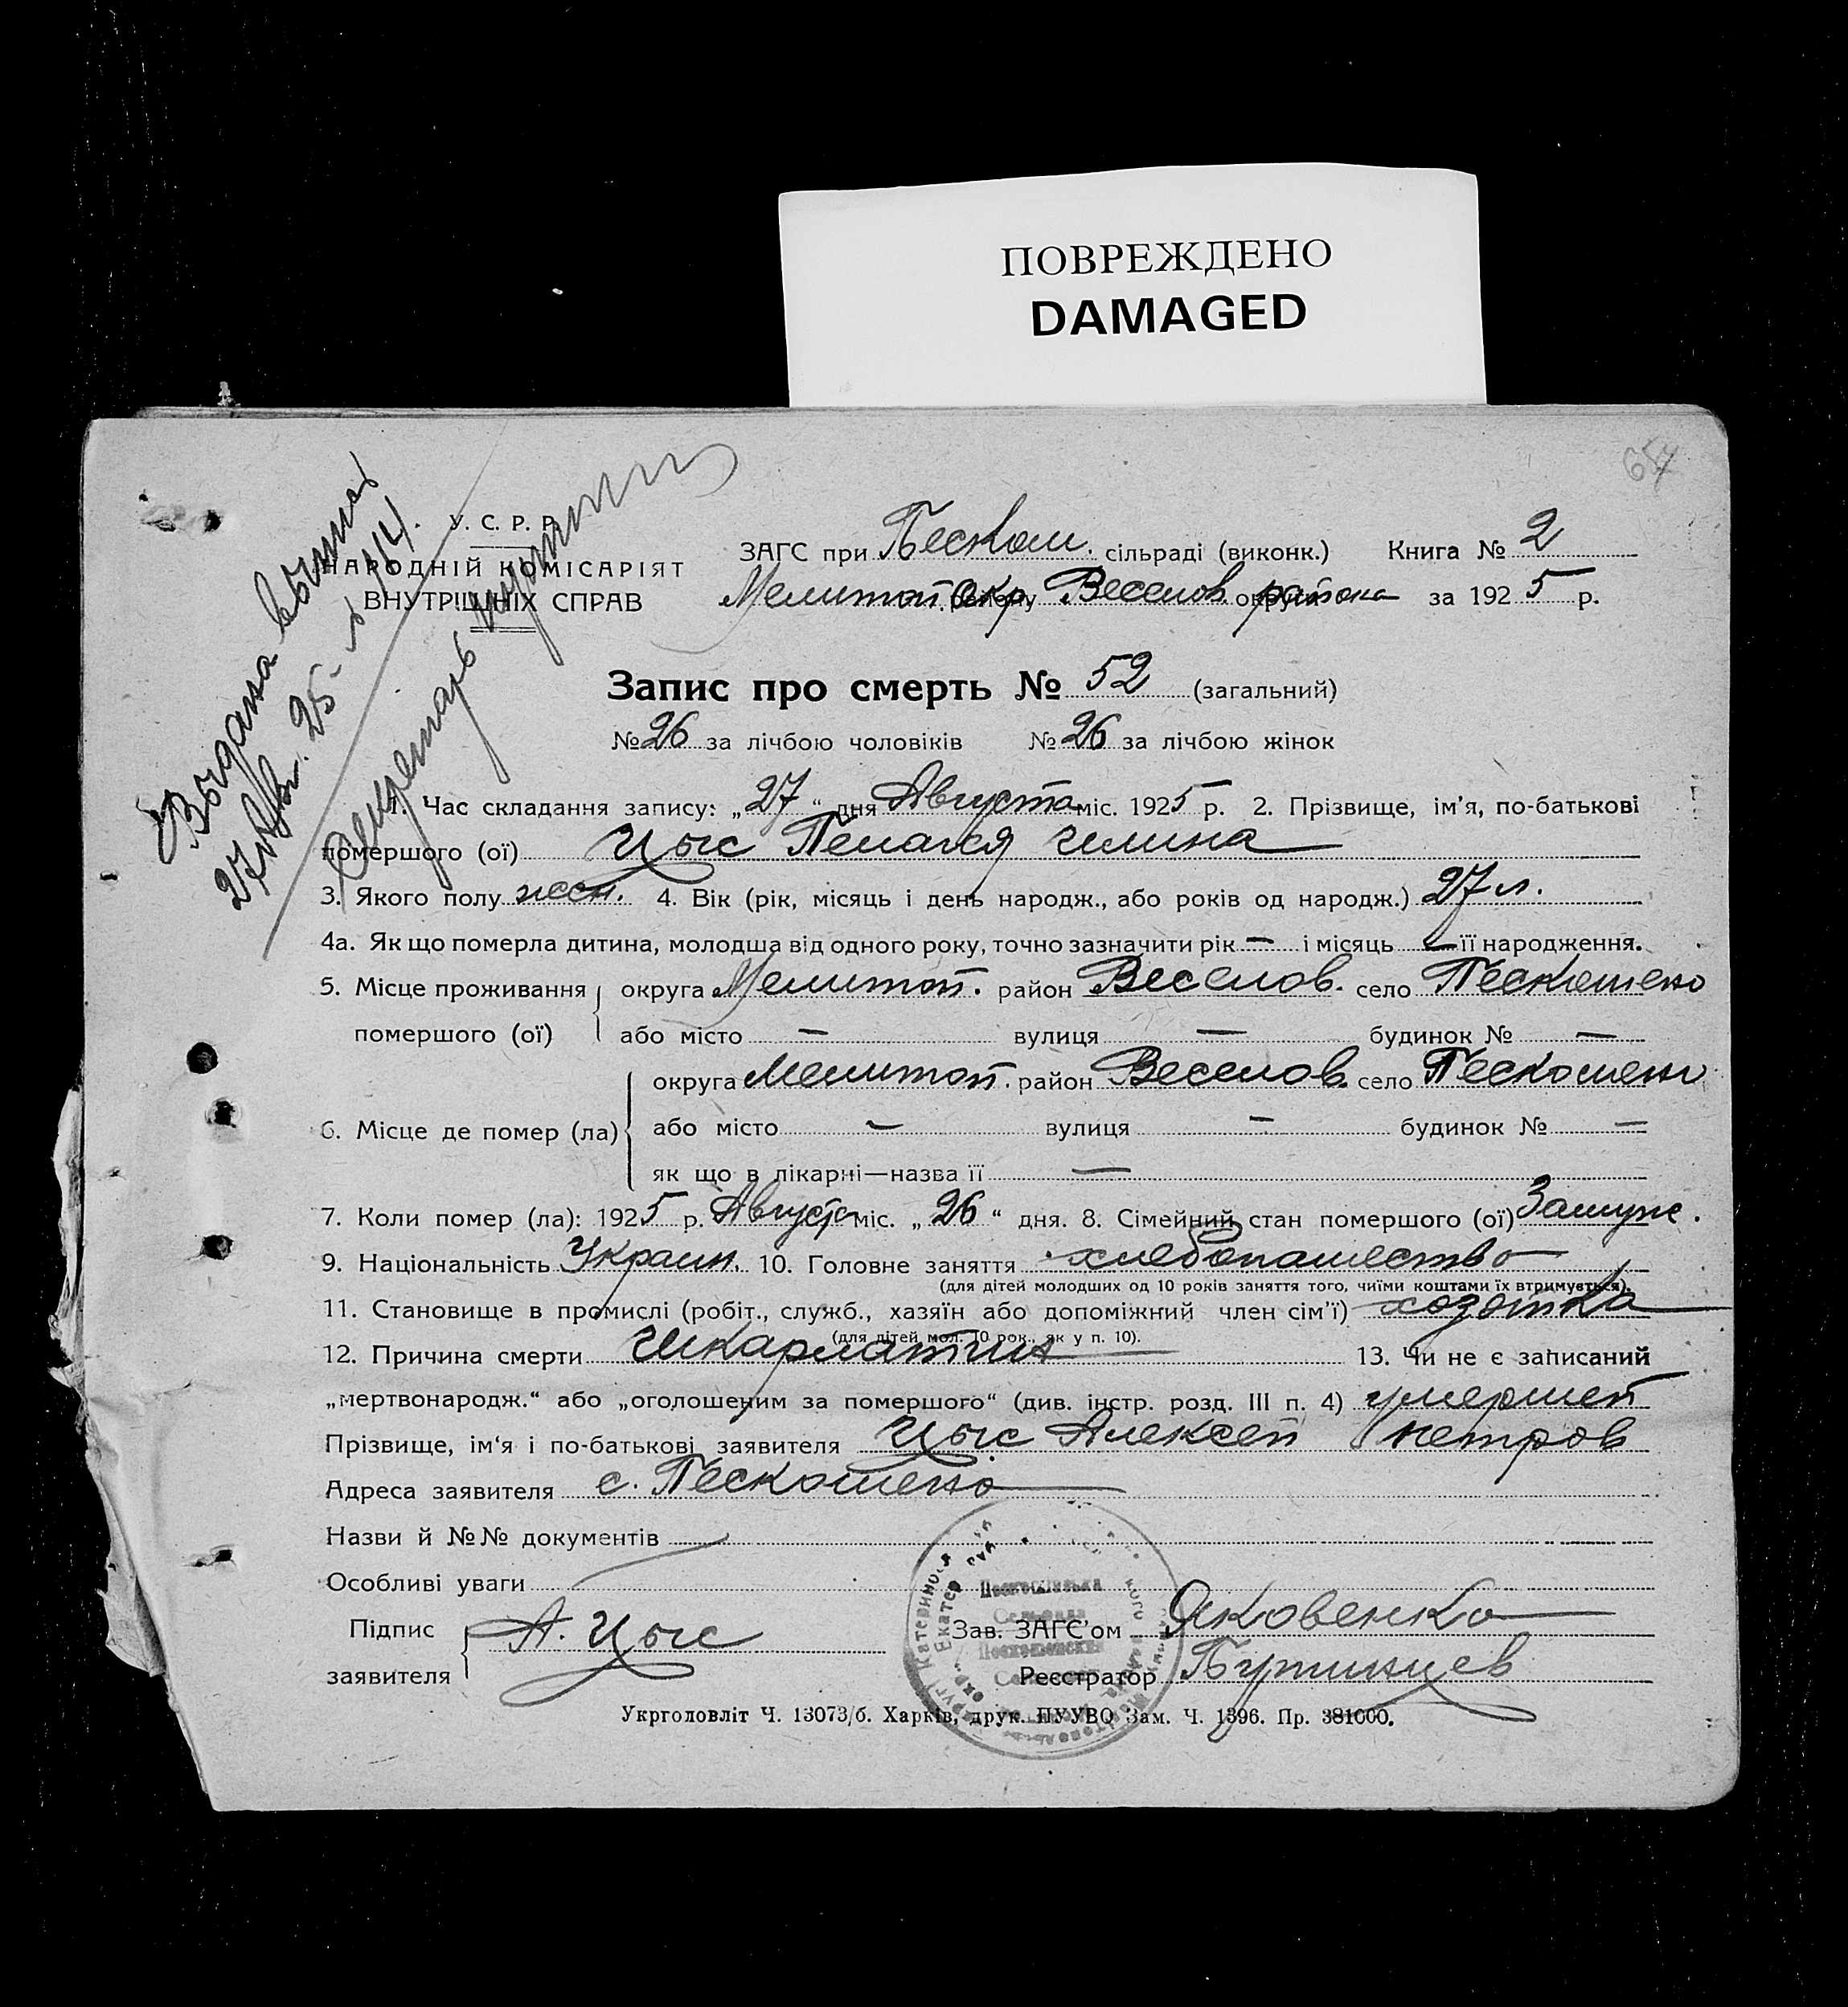 ПОВРЕЖДЕНО
DAMAGED
Выдана
27/VIII. 25
Секретарь
У. С. Р. Р.
НАРОДНІЙ КОМІСАРІЯТ
ВНУТРІШНІХ СПРАВ
ЗАГС при Пескош. сільраді (виконк.) Книга № 2
Мелитоп. окр. району Веселов. округи района за 1925 р.
Запис про смерть № 52 (загальний)
№ 26 за лічбою чоловіків № 26 за лічбою жінок
1. Час складання запису: „27“ дня Августа міс. 1925 р. 2. Прізвище, ім’я, по-батькові
помершого (ої) Цыс Пелагея
3. Якого полу жен. 4. Вік (рік, місяць і день народж., або років од народж.) 27 л.
4а. Як що померла дитина, молодша від одного року, точно зазначити рік — і місяць — її народження.
5. Місце проживання помершого (ої) округа Мелитоп. район Веселов. село Пескошено
або місто — вулиця — будинок № —
6. Місце де помер (ла) округа Мелитоп. район Веселов. село Пескошено
або місто — вулиця — будинок № —
як що в лікарні—назва її —
7. Коли помер (ла): 1925 р. Августа міс. „26“ дня. 8. Сімейний стан помершого (ої) Замуж.
9. Національність Украин. 10. Головне заняття хлебопашество
(для дітей молодших од 10 років заняття того, чиїми коштами їх втримується).
11. Становище в промислі (робіт., служб., хазяїн або допоміжний член сім’ї) хозяйка
(для дітей мол. 10 рок., як у п. 10).
12. Причина смерти Шкарлатина 13. Чи не є записаний
„мертвонародж.“ або „оголошеним за помершого“ (див. інстр. розд. III п. 4) умершей
Прізвище, ім‘я і по-батькові заявителя Цыс Алексей Петров
Адреса заявителя с. Пескошено
Назви й №№ документів
Особливі уваги
Підпис заявителя А. Цыс
Зав. ЗАГС’ом Яковенко
Реєстратор
Укрголовліт Ч. 13073/б. Харків, друк. ПУУВО Зам. Ч. 1396. Пр. 381000.